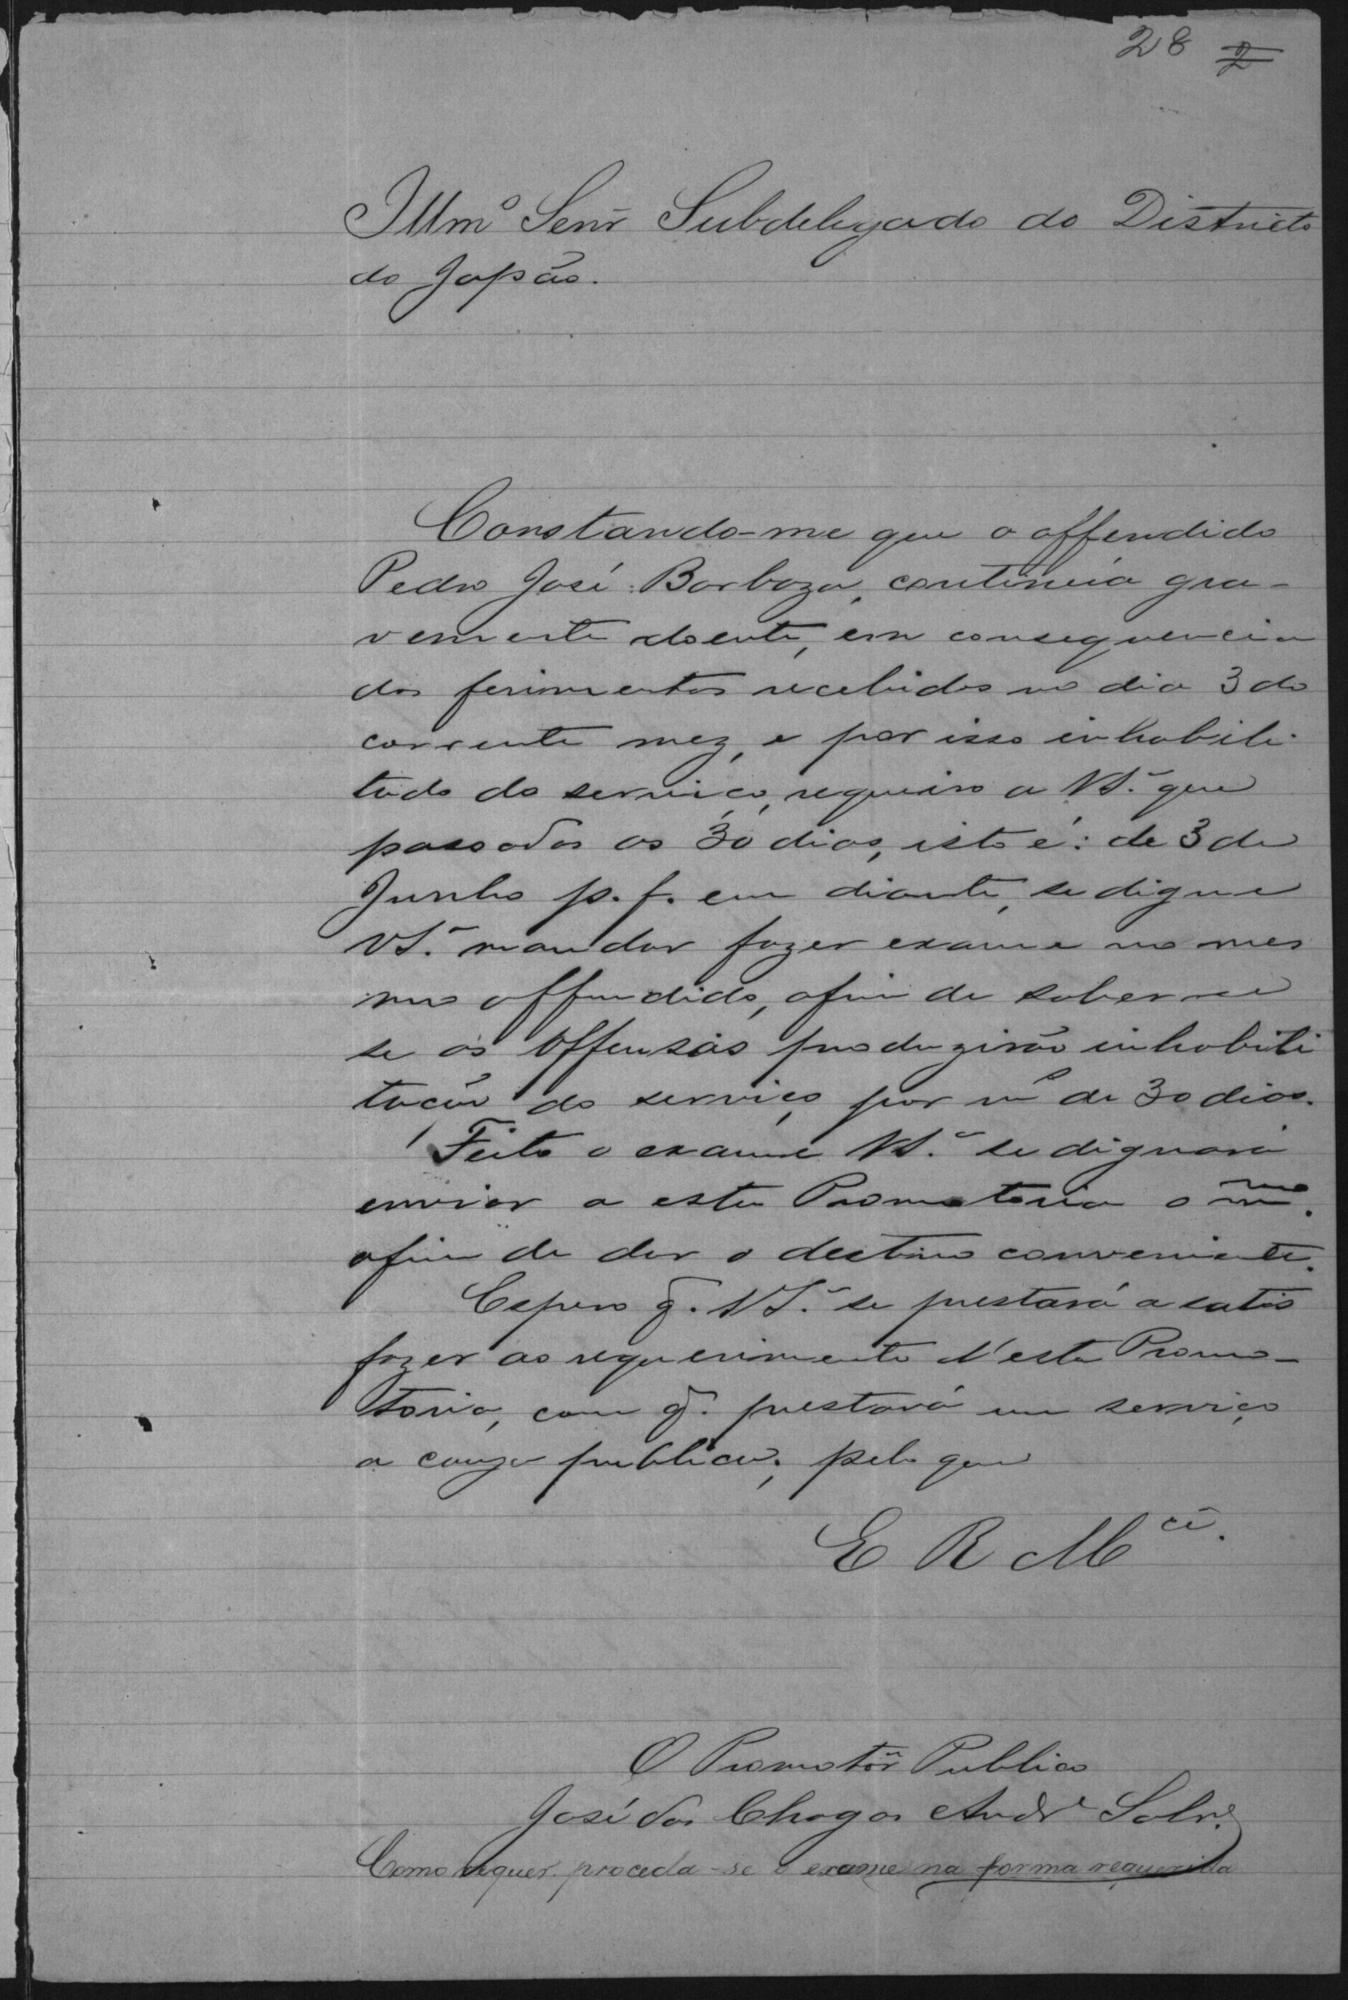 28 2
Illmº Senr Subdelegado do Districto
do Japão.
Constando-me que o offendido
Pedro José Barboza, continúa gra-
vemente doente, em consequencia
dos ferimentos recebidos no dia 3 do
corrente mez, e por isso inhabili-
tado do serviço, requeiro a VS.ª que
passados os 30 dias, isto é: de 3 de
Junho p. f. em diante, se digne
VS.ª mandar fazer exame no mes
mo offendido, afim de saber-se
se as offensas produzirão inhabili
tação do serviço por mº de 30 dias.
Feito o exame VS.ª se dignará
enviar a esta Promotoria o mmo.
afim de dar o destino conveniente.
Espero q. VS.ª se prestará a satis
fazer ao requerimento d'esta Promo-
toria, com q. prestará um serviço
a cauza publica; pelo que
E R Mcê.
O Promotôr Publico
José das Chagas Andre Sobro.
Como requer. proceda-se o exame na forma requerida